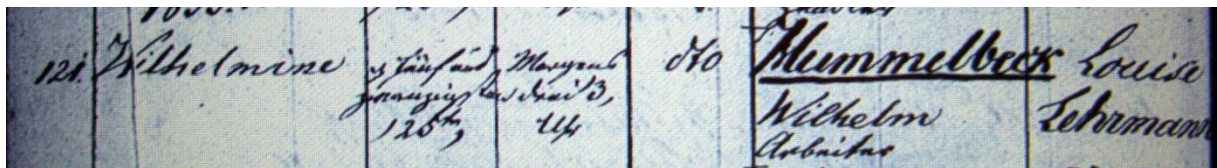 121. Wilhelmine
d. fünf und
zwanzigsten
(25ten)
Morgens
drei 3,
Uhr
dto
Hummelbeck
Wilhelm
Arbeiter
Louise
Lehrmann